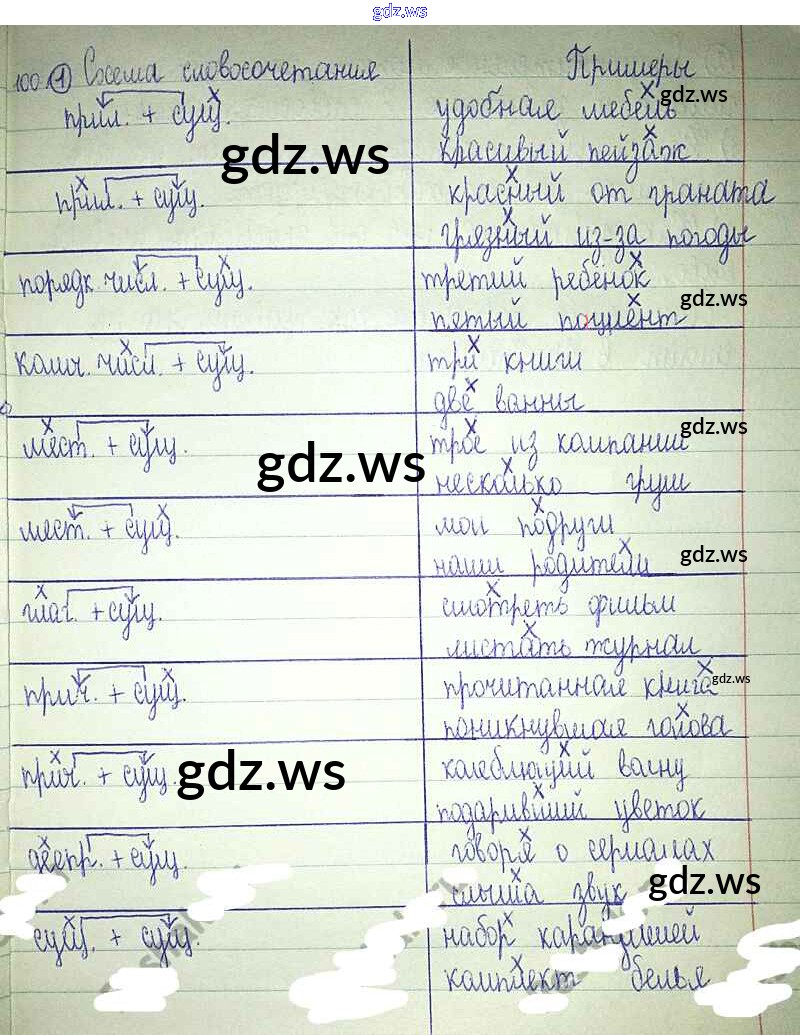 gdz.ws
100. 1 Схема словосочетания Примеры
прил. + сущ. удобная мебель gdz.ws
красивый пейзаж
gdz.ws
прил. + сущ. красный от граната
грязный из-за погоды
порядк. числ. + сущ. третий ребёнок
пятый пациент gdz.ws
колич. числ. + сущ. три книги
две ванны
мест. + сущ. трое из компании gdz.ws
несколько груш
gdz.ws
мест. + сущ. мои подруги
наши родители gdz.ws
глаг. + сущ. смотреть фильм
листать журнал
прич. + сущ. прочитанная книга gdz.ws
поникнувшая голова
прич. + сущ. колеблющий волну
gdz.ws
подаривший цветок
деепр. + сущ. говоря о сериалах
слыша звук gdz.ws
сущ. + сущ. набор карандашей
комплект белья